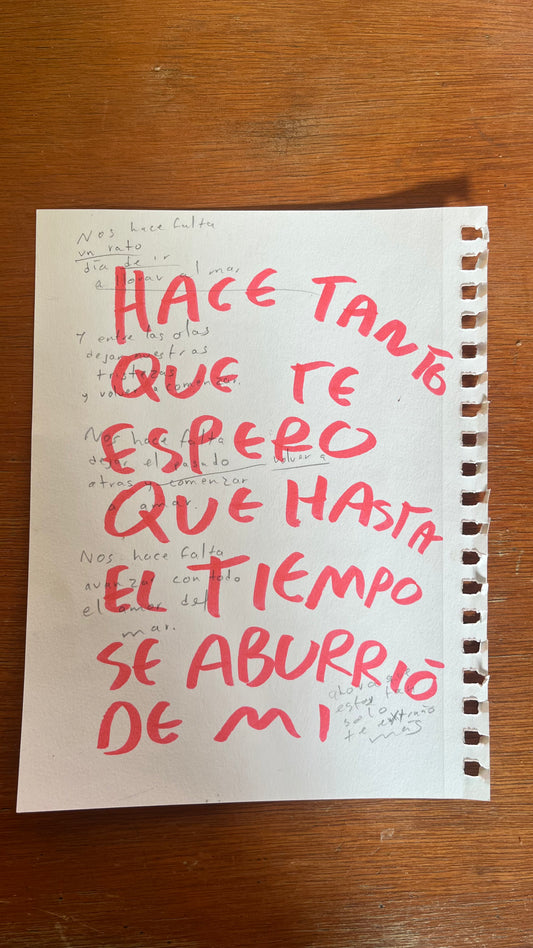 Nos hace falta
un rato
día de ir
a llorar al mar
HACE TANTO
QUE TE
ESPERO
QUE HASTA
EL TIEMPO
SE ABURRIÓ
DE MI
Y entre las olas
dejar nuestras
tristezas
y volver a comenzar.
Nos hace falta
dejar el pasado volver a
atras y comenzar
a amar.
Nos hace falta
avanzar con todo
el amor del
mar.
ahora que
estoy tan
solo
te extraño
más